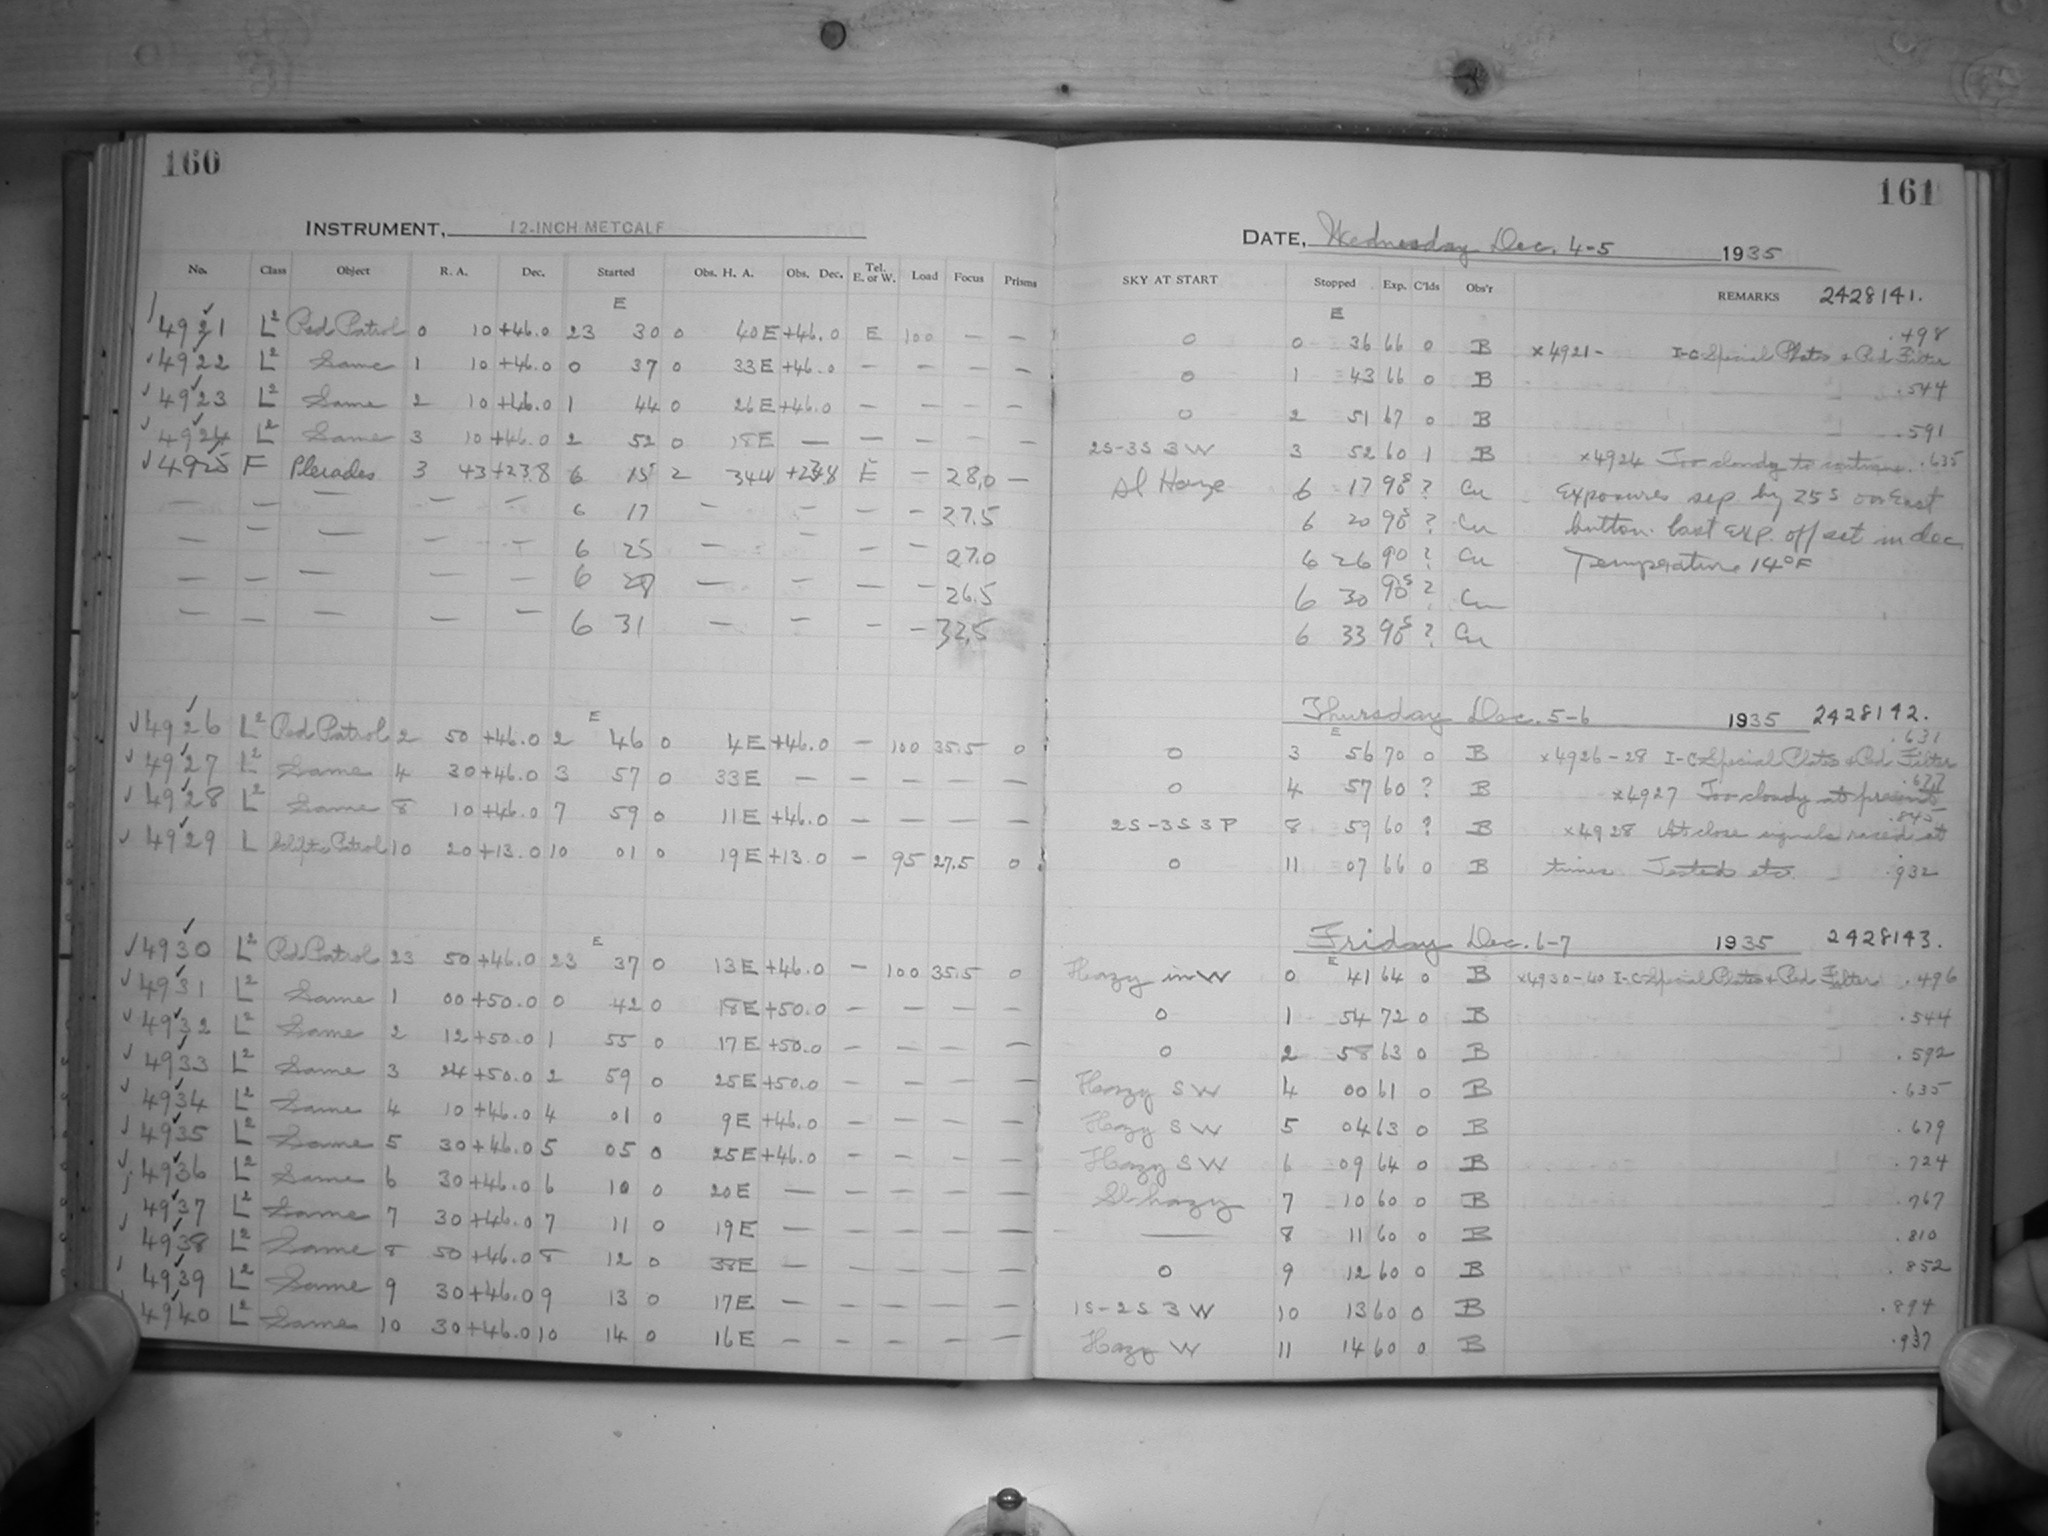 160
INSTRUMENT, 12-INCH METCALF
No. Class Object R. A. Dec. Started Obs. H. A. Obs. Dec. Tel. E. or W. Load Focus Prisms
E
4921 L2 Red Patrol 0 10 +46.0 23 30 0 40E +46.0 E 100 — —
4922 L2 Same 1 10 +46.0 0 37 0 33E +46.0 — — — —
4923 L2 Same 2 10 +46.0 1 44 0 26E +46.0 — — — —
4924 L2 Same 3 10 +46.0 2 52 0 18E — — — — —
4925 F Pleiades 3 43 +23.8 6 15 2 34W E — 28.0 —
— — — — — 6 17 — — — — 27.5
— — — — — 6 25 — — — — 27.0
— — — — — 6 28 — — — — 26.5
— — — — — 6 31 — — — — 32.5
E
4926 L2 Red Patrol 2 50 +46.0 2 46 0 4E +46.0 — 100 35.5 0
4927 L2 Same 4 30 +46.0 3 57 0 33E — — — — —
4928 L2 Same 8 10 +46.0 7 59 0 11E +46.0 — — — —
4929 L Ecliptic Patrol 10 20 +13.0 10 01 0 19E +13.0 — 95 27.5 0
E
4930 L2 Red Patrol 23 50 +46.0 23 37 0 13E +46.0 — 100 35.5 0
4931 L2 Same 1 00 +50.0 0 42 0 18E +50.0 — — — —
4932 L2 Same 2 12 +50.0 1 55 0 17E +50.0 — — — —
4933 L2 Same 3 24 +50.0 2 59 0 25E +50.0 — — — —
4934 L2 Same 4 10 +46.0 4 01 0 9E +46.0 — — — —
4935 L2 Same 5 30 +46.0 5 05 0 25E +46.0 — — — —
4936 L2 Same 6 30 +46.0 6 10 0 20E — — — — —
4937 L2 Same 7 30 +46.0 7 11 0 19E — — — — —
4938 L2 Same 8 50 +46.0 8 12 0 38E — — — — —
4939 L2 Same 9 30 +46.0 9 13 0 17E — — — — —
4940 L2 Same 10 30 +46.0 10 14 0 16E — — — — —
161
DATE, Wednesday Dec. 4-5 1935
SKY AT START Stopped Exp. C'lds Obs'r REMARKS 2428141.
E
0 0 36 66 0 B x4921- I-C Special Plates & Red Filter .498
0 1 43 66 0 B .544
0 2 51 67 0 B .591
2S-3S 3W 3 52 60 1 B x4924 Too cloudy to continue. .635
Sl Haze 6 17 90s ? Cu Exposures sep by 25s on East
6 20 90s ? Cu button. last Exp. offset in dec
6 26 90 ? Cu Temperature 14°F
6 30 90s ? Cu
6 33 90s ? Cu
Thursday Dec. 5-6 1935 2428142.
E
0 3 56 70 0 B x4926-28 I-C Special Plates & Red Filter .631
0 4 57 60 ? B x4927 Too cloudy at present .677
2S-3S 3P 8 59 60 ? B x4928 At close signals raced at .845
0 11 07 66 0 B times. Tested etc. .932
Friday Dec. 6-7 1935 2428143.
E
Hazy in W 0 41 64 0 B x4930-40 I-C Special Plates & Red Filter .496
0 1 54 72 0 B .544
0 2 58 63 0 B .592
Hazy SW 4 00 61 0 B .635
Hazy SW 5 04 63 0 B .679
Hazy SW 6 09 64 0 B .724
Sl hazy 7 10 60 0 B .767
— 8 11 60 0 B .810
0 9 12 60 0 B .852
1S-2S 3W 10 13 60 0 B .894
Hazy W 11 14 60 0 B .937